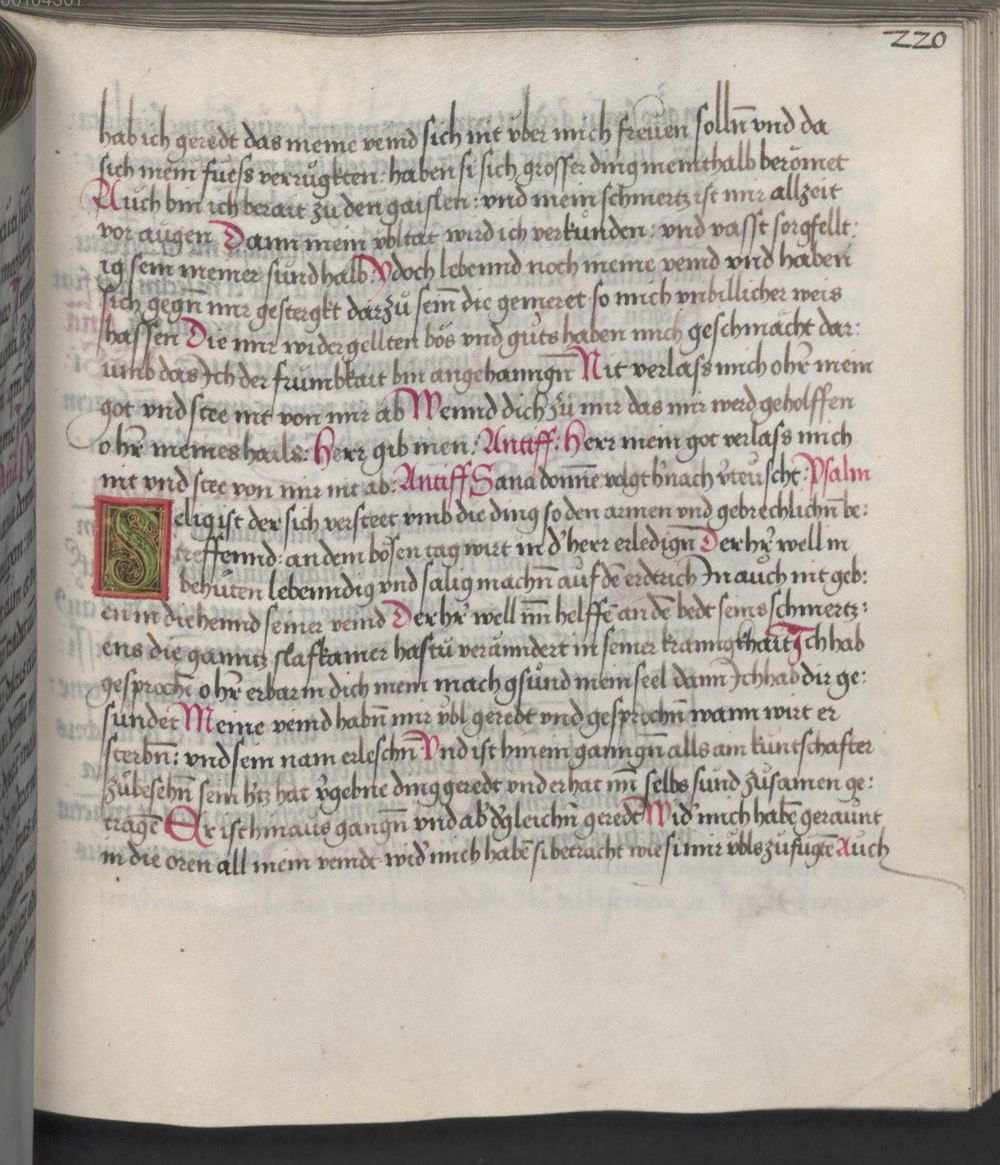 220
hab ich geredt das meine veind sich nit vber mich freuen solln̄ vnd da
sich mein fuess verrugkten: haben si sich grosser ding meinthalb berömet
Auch bin ich berait zu den gaislen: vnd mein schmertz ist mir allzeit
vor augen Dann mein vbltat wird ich verkunden: vnd vasst sorgfellt:
ig sein meiner sund halb: Ydoch lebennd noch meine veind vnd haben
sich gegn̄ mir gestergkt darzů sein̄ die gemeret so mich vnbillicher weis
hassen Die mir widergellten bös vnd guts haben mich geschmächt dar:
umb das Ich der frumbkait bin angehanngn̄ Nit verlass mich o hr̄ mein
got vnd stee nit von mir ab Wennd dich zu mir das mir werd geholffen
o hr̄ meines hails: Herr gib inen: Antiff: Herr mein got verlass mich
nit vnd stee von mir nit ab: Antiff Sana domīne volgt h'nach v'teuscht: Psalm
Selig ist der sich versteet vmb die ding so den armen vnd gebrechlichn̄ be:
treffennd: an dem bösen tag wirt in d' herr erledign̄ Der hr̄ well in
behüten lebenndig vnd salig machn̄ auf dē erdtrich In auch nit geb:
en in die hennd seiner veind Der hr̄ well im̄ helffē an dē bedt seins schmertz:
ens die ganntz slafkamer hastu verännderт in seiner krannghait Ich hab
gesprochē o hr̄ erbarm dich mein mach gsůnd mein seel dann Ich hab dir ge:
sündet Meine veind habn̄ mir vbl geredt vnd gesprochn̄ wann wirt er
sterbn̄: vnd sein nam erleschn̄ Vnd ist hinein ganngn̄ alls ain kuntschafter
zůbesehn̄ sein h'tz hat v'gebne ding geredt vnd er hat im̄ selbs sünd zůsamen ge:
tragē Er ist hinaus gangn̄ vnd ab' d'gleichn̄ geredt Wid' mich habē geraunt
in die oren all mein veindt wid' mich habē si betracht wie si mir vbls zufügtē Auch